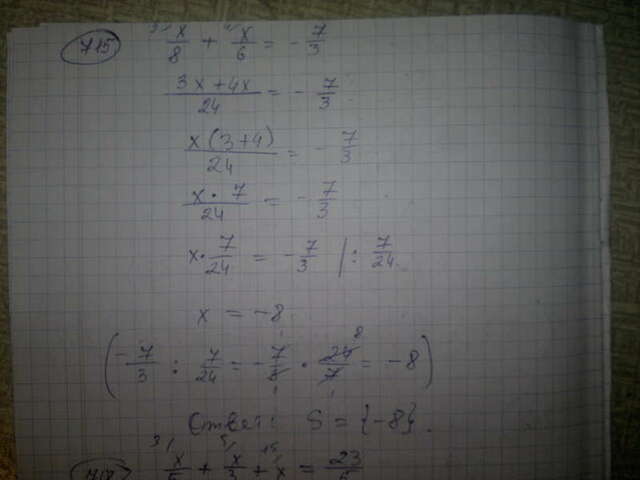 715 3/ x/8 + 4/ x/6 = - 7/3
3x + 4x / 24 = - 7/3
x(3+4) / 24 = - 7/3
x · 7 / 24 = - 7/3
x · 7/24 = - 7/3 | : 7/24
x = -8
( -7/3 : 7/24 = - 7/3 · 24/7 8 = -8 )
Ответ: S = {-8}.
3/ x/5 + 5/ x/3 + 15/ x = 23/5